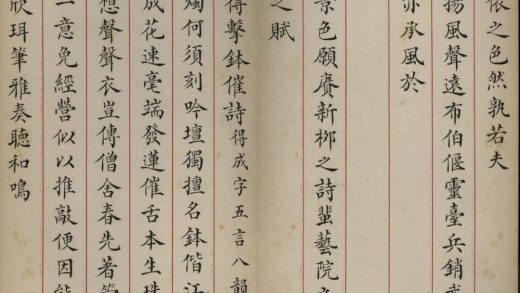 依之色然孰若夫
揚風聲遠布伯偃靈臺兵銷
亦承風於
景色願賡新柳之詩蜚藝院
之賦
得擊鉢催詩得成字五言八韻
燭何須刻吟壇獨擅名鉢偕江
成花速毫端發蓮催古本生珠
想聲聲衣豈傳僧舍春先著
一意免經營似以推敲便因能
欣珥筆雅奏聽和鳴